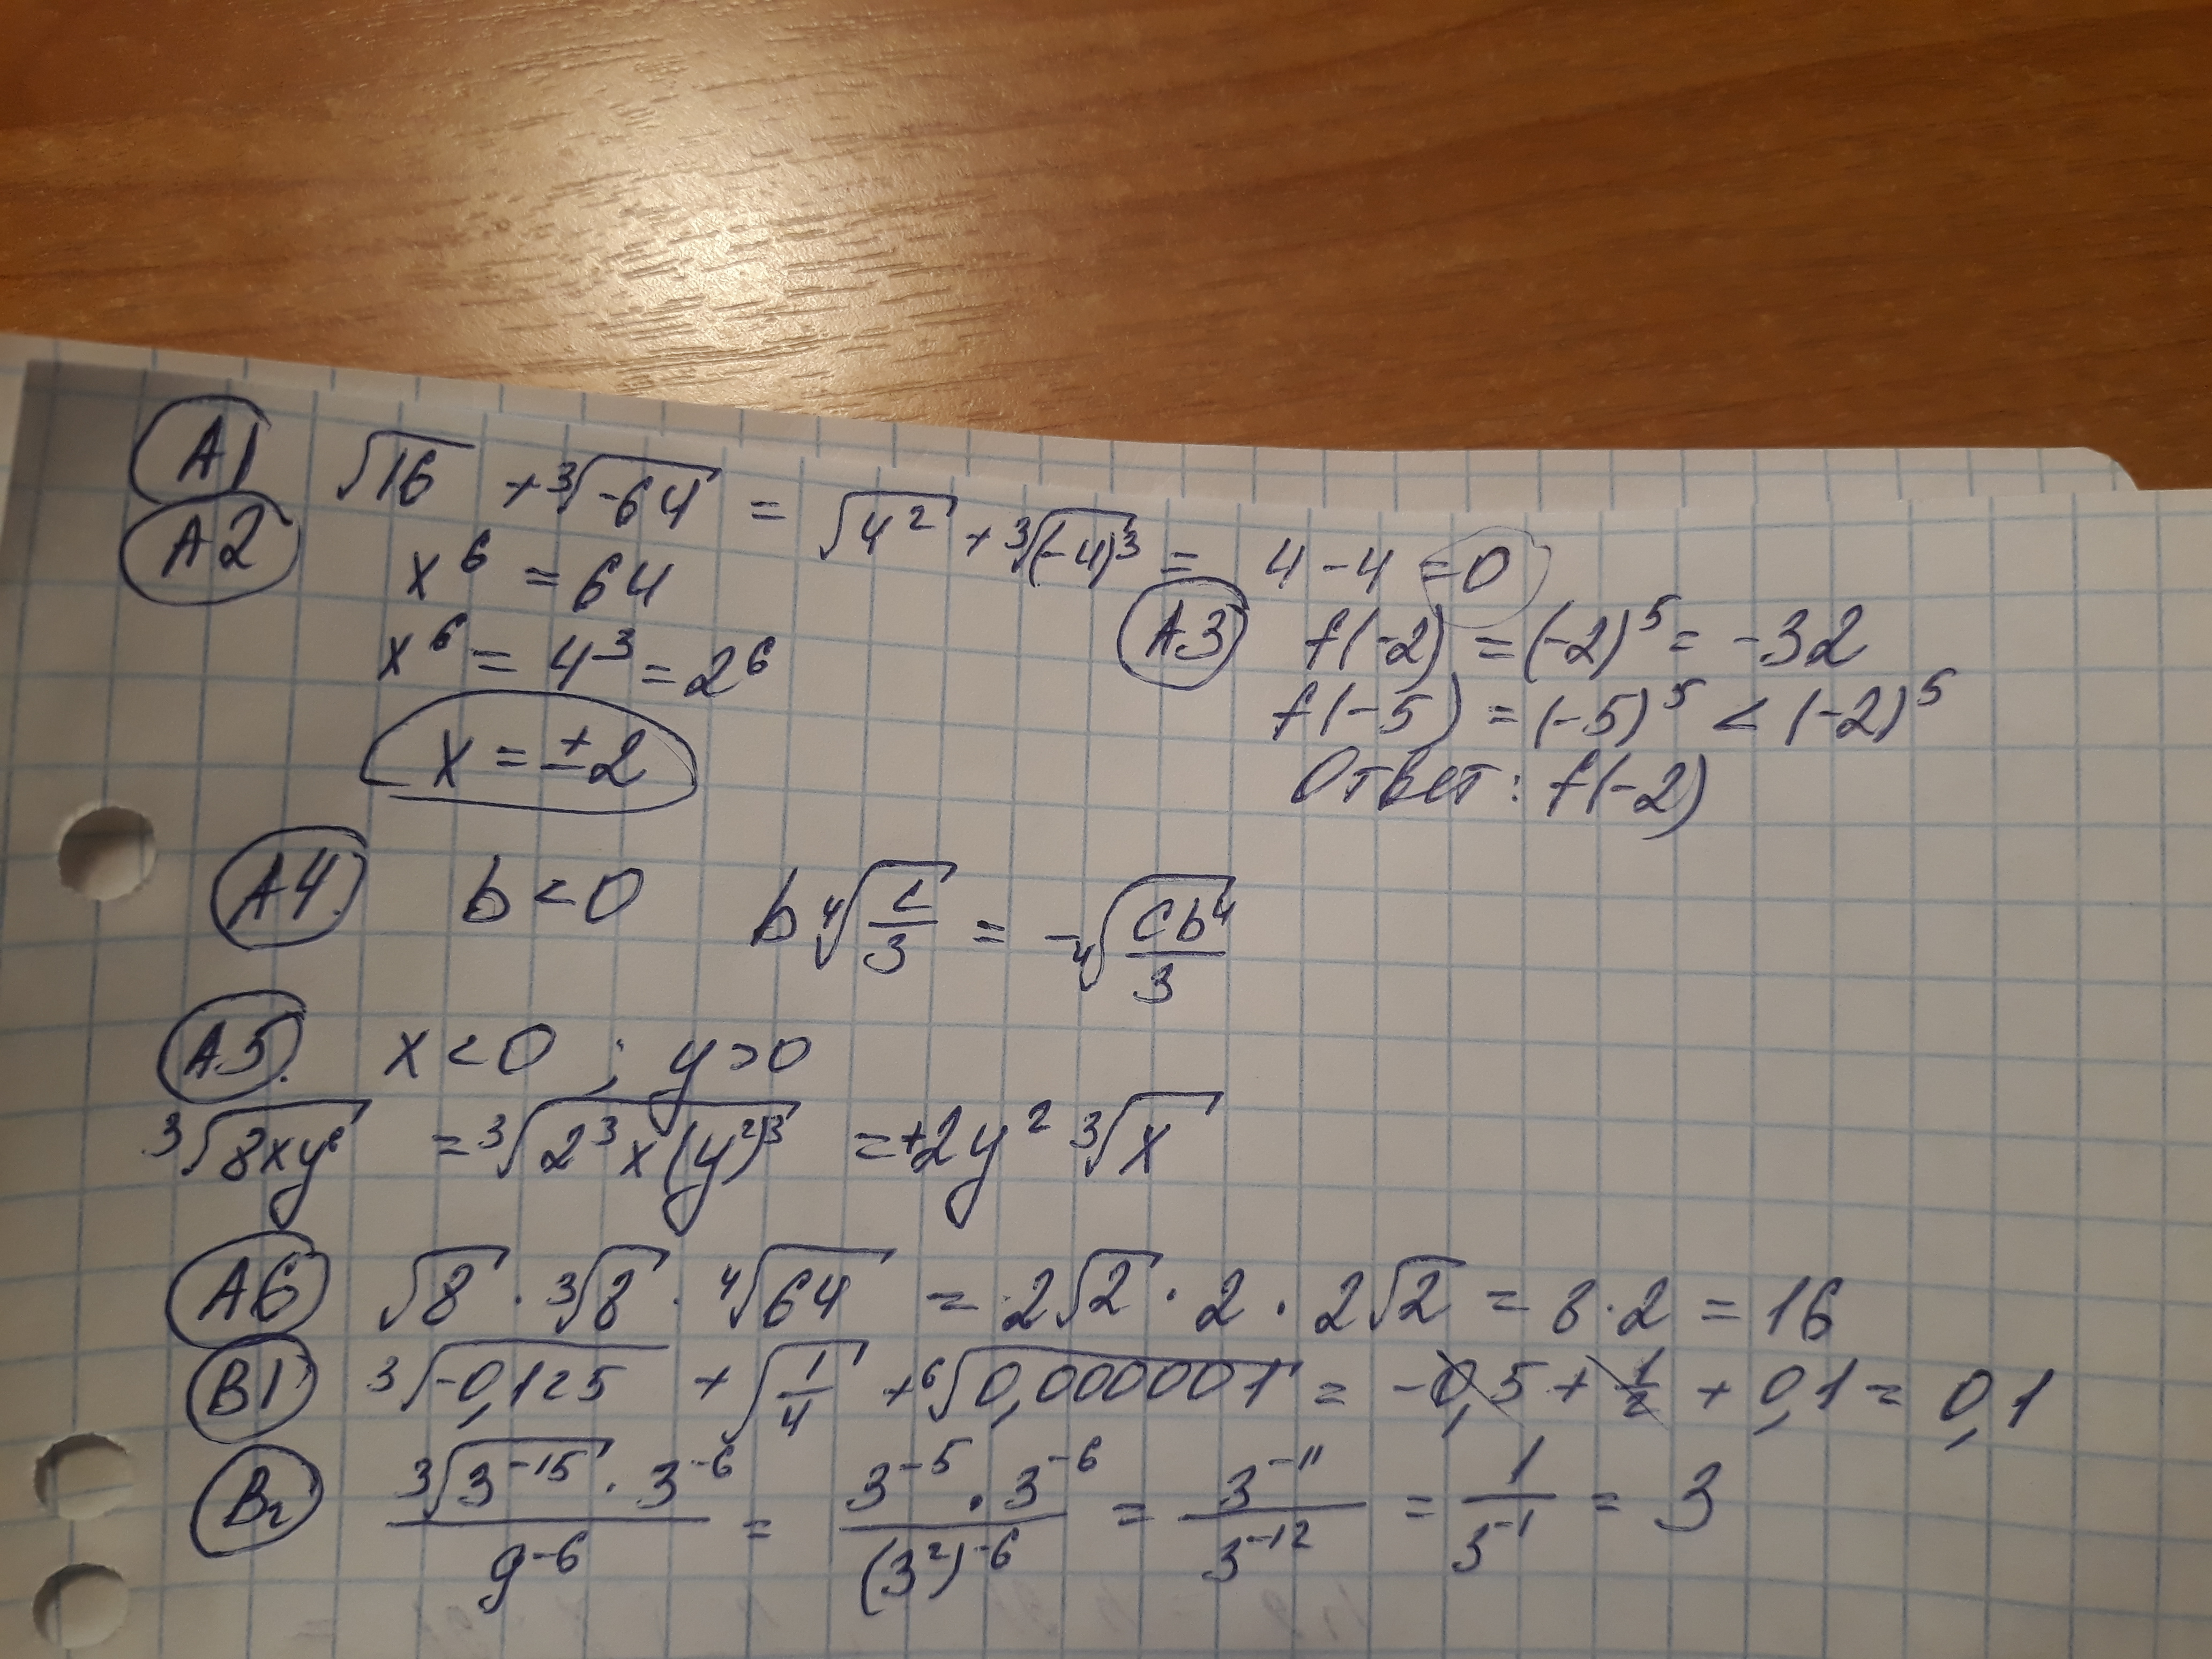 A1 √16 + ∛-64 = √4² + ∛(-4)³ = 4 - 4 = 0
A2 x⁶ = 64
x⁶ = 4³ = 2⁶
x = ±2
A3 f(-2) = (-2)⁵ = -32
f(-5) = (-5)⁵ < (-2)⁵
Ответ: f(-2)
A4. b < 0 b ∜(c/3) = -∜(cb⁴/3)
A5. x < 0 ; y > 0
∛(8xy⁶) = ∛(2³x(y²)³) = +2y² ∛x
A6 √8 · ∛8 · ∜64 = 2√2 · 2 · 2√2 = 8·2 = 16
B1 ∛-0,125 + √(1/4) + ⁶√0,000001 = -0,5 + 1/2 + 0,1 = 0,1
B2 (∛(3⁻¹⁵) · 3⁻⁶)/9⁻⁶ = (3⁻⁵ · 3⁻⁶)/(3²)⁻⁶ = 3⁻¹¹/3⁻¹² = 1/3⁻¹ = 3